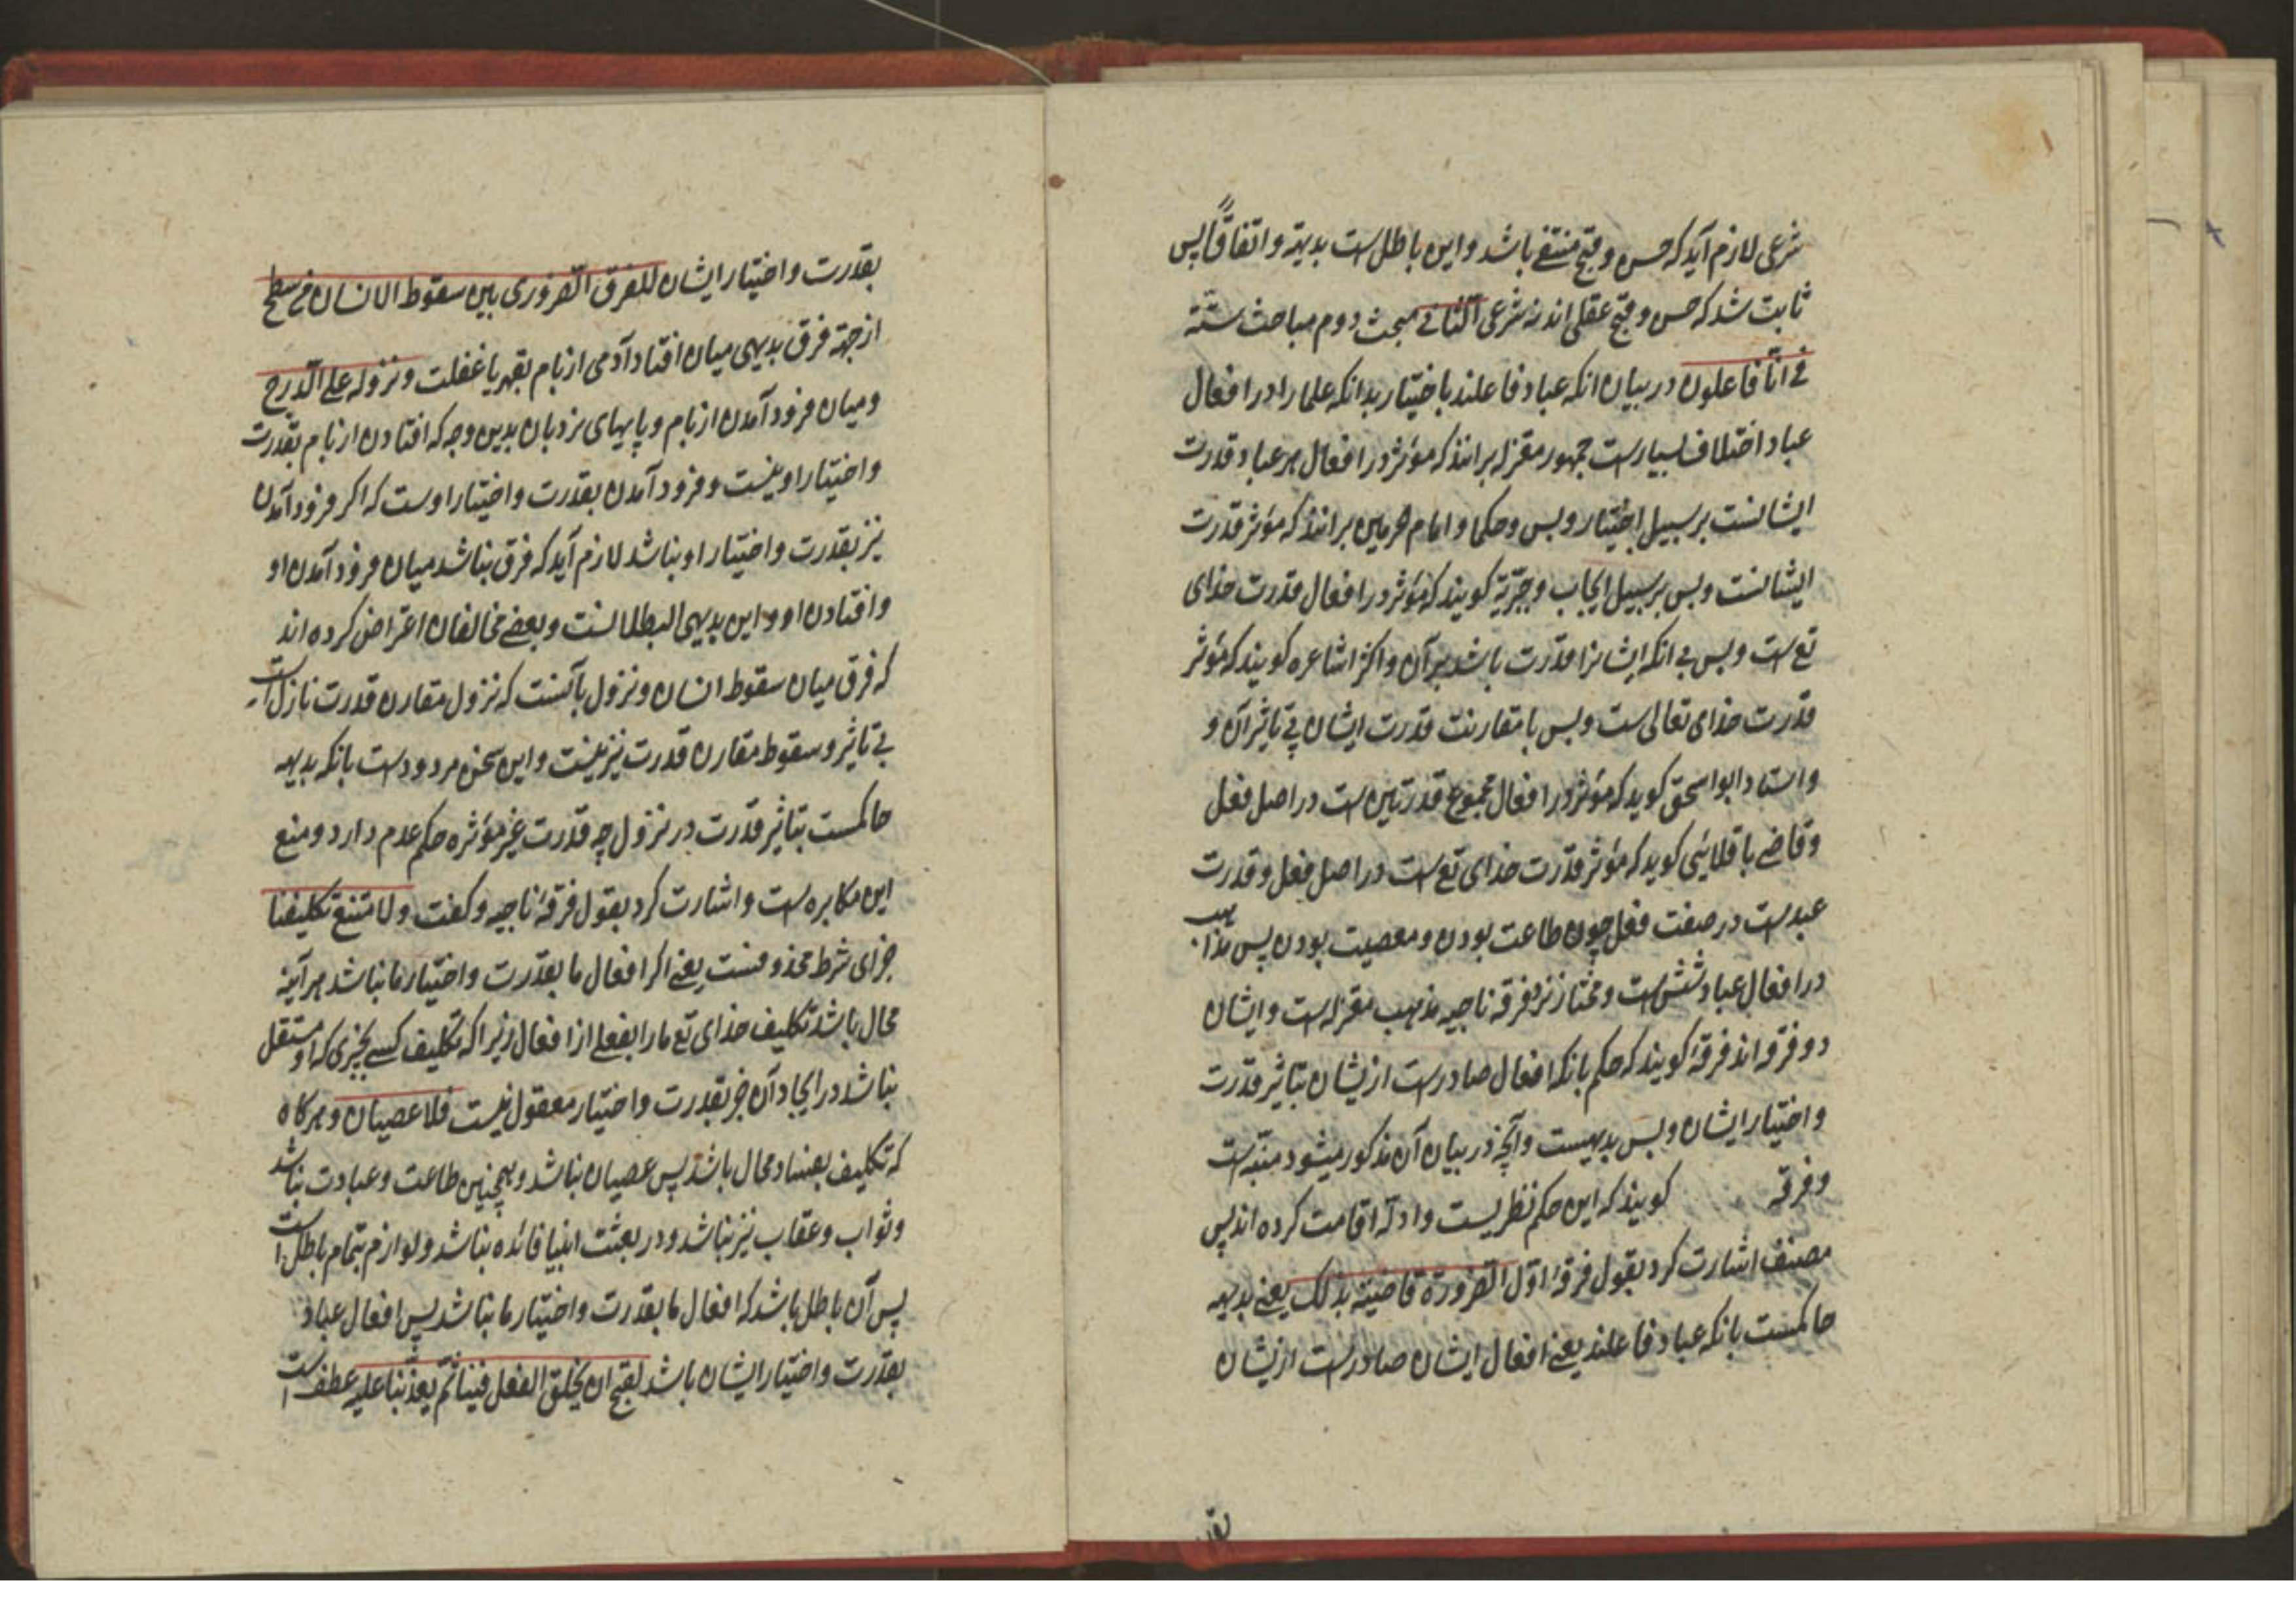 شرعی لازم آید که حسن و قبح منتفی باشد و این باطل است بدیهة و اتفاقاً پس
ثابت شد که حسن و قبح عقلی اند نه شرعی الثانی مبحث دوم مباحث ستّه
فی انّا فاعلون در بیان انکه عباد فاعلند باختیار بدانکه علما را در افعال
عباد اختلاف بسیارست جمهور معتزله برانند که مؤثر در افعال هر عباد قدرت
ایشانست بر سبیل اختیار و بس و حکما و امام حرمین برانند که مؤثر قدرت
ایشانست و بس بر سبیل ایجاب و جبریّه کویند که مؤثر در افعال قدرت خدای
تع است و بس بی انکه ایشانرا قدرت باشد بر آن و اکثر اشاعره کویند که مؤثر
قدرت خدای تعالی است و بس با مقارنت قدرت ایشان بی تاثیر آن و
و استاد ابو اسحق کوید که مؤثر در افعال مجموع قدرتین است در اصل فعل
و قاضی باقلانی کوید که مؤثر قدرت خدای تع است در اصل فعل و قدرت
عبد است در صفت فعل چون طاعت بودن و معصیت بودن پس مذاهب
در افعال عباد شش است و مختار نزد فرقه ناجیه مذهب معتزله است و ایشان
دو فرقه اند فرقهٔ کویند که حکم بانکه افعال صادرست ازیشان بتاثیر قدرت
و اختیار ایشان و بس بدیهیست و آنچه در بیان آن مذکور میشود منبّه است
و فرقه کویند که این حکم نظریست و ادلّه اقامت کرده اند پس
مصنف اشارت کرد بقول فرقهٔ اوّل الضّرورة قاضیة بذلک یعنی بدیهه
حاکمست بانکه عباد فاعلند یعنی افعال ایشان صادرست ازیشان
بقدرت و اختیار ایشان للفرق الضّروری بین سقوط الانسان فی سطح
از جهة فرق بدیهی میان افتاد آدمی از بام بقهر یا غفلت و نزوله علی الدّرج
و میان فرود آمدن از بام و پایهای نردبان بدین وجه که افتادن از بام بقدرت
و اختیار او نیست و فرود آمدن بقدرت و اختیار اوست که اکر فرود آمدن
نیز بقدرت و اختیار او نباشد لازم آید که فرق نباشد میان فرود آمدن او
و افتادن او و این بدیهی البطلانست و بعضی مخالفان اعتراض کرده اند
که فرق میان سقوط انسان و نزول بآنست که نزول مقارن قدرت نازل است
بی تاثیر و سقوط مقارن قدرت نیز نیست و این سخن مردودست بانکه بدیهه
حاکمست بتاثیر قدرت در نزول چه قدرت غیر مؤثره حکم عدم دارد و منع
این مکابره است و اشارت کرد بقول فرقهٔ ناجیه و کفت و لامتنع تکلیفنا
جزای شرط محذوفست یعنی اکر افعال ما بقدرت و اختیار ما نباشد هر آینه
محال باشد تکلیف خدای تع ما را بفعلی از افعال زیرا که تکلیف کسی بچیزی که او مستقل
نباشد در ایجاد آن جز بقدرت و اختیار معقول نیست فلا عصیان و هر کاه
که تکلیف بعباد محال باشد پس عصیان نباشد و همچنین طاعت و عبادت نباشد
و ثواب و عقاب نیز نباشد و در بعثت انبیا فائده نباشد و لوازم بتمام باطل است
پس آن باطل باشد که افعال ما بقدرت و اختیار ما نباشد پس افعال عباد
بقدرت و اختیار ایشان باشد لقبح ان یخلق الفعل فینا ثمّ یعذّبنا علیه عطف است